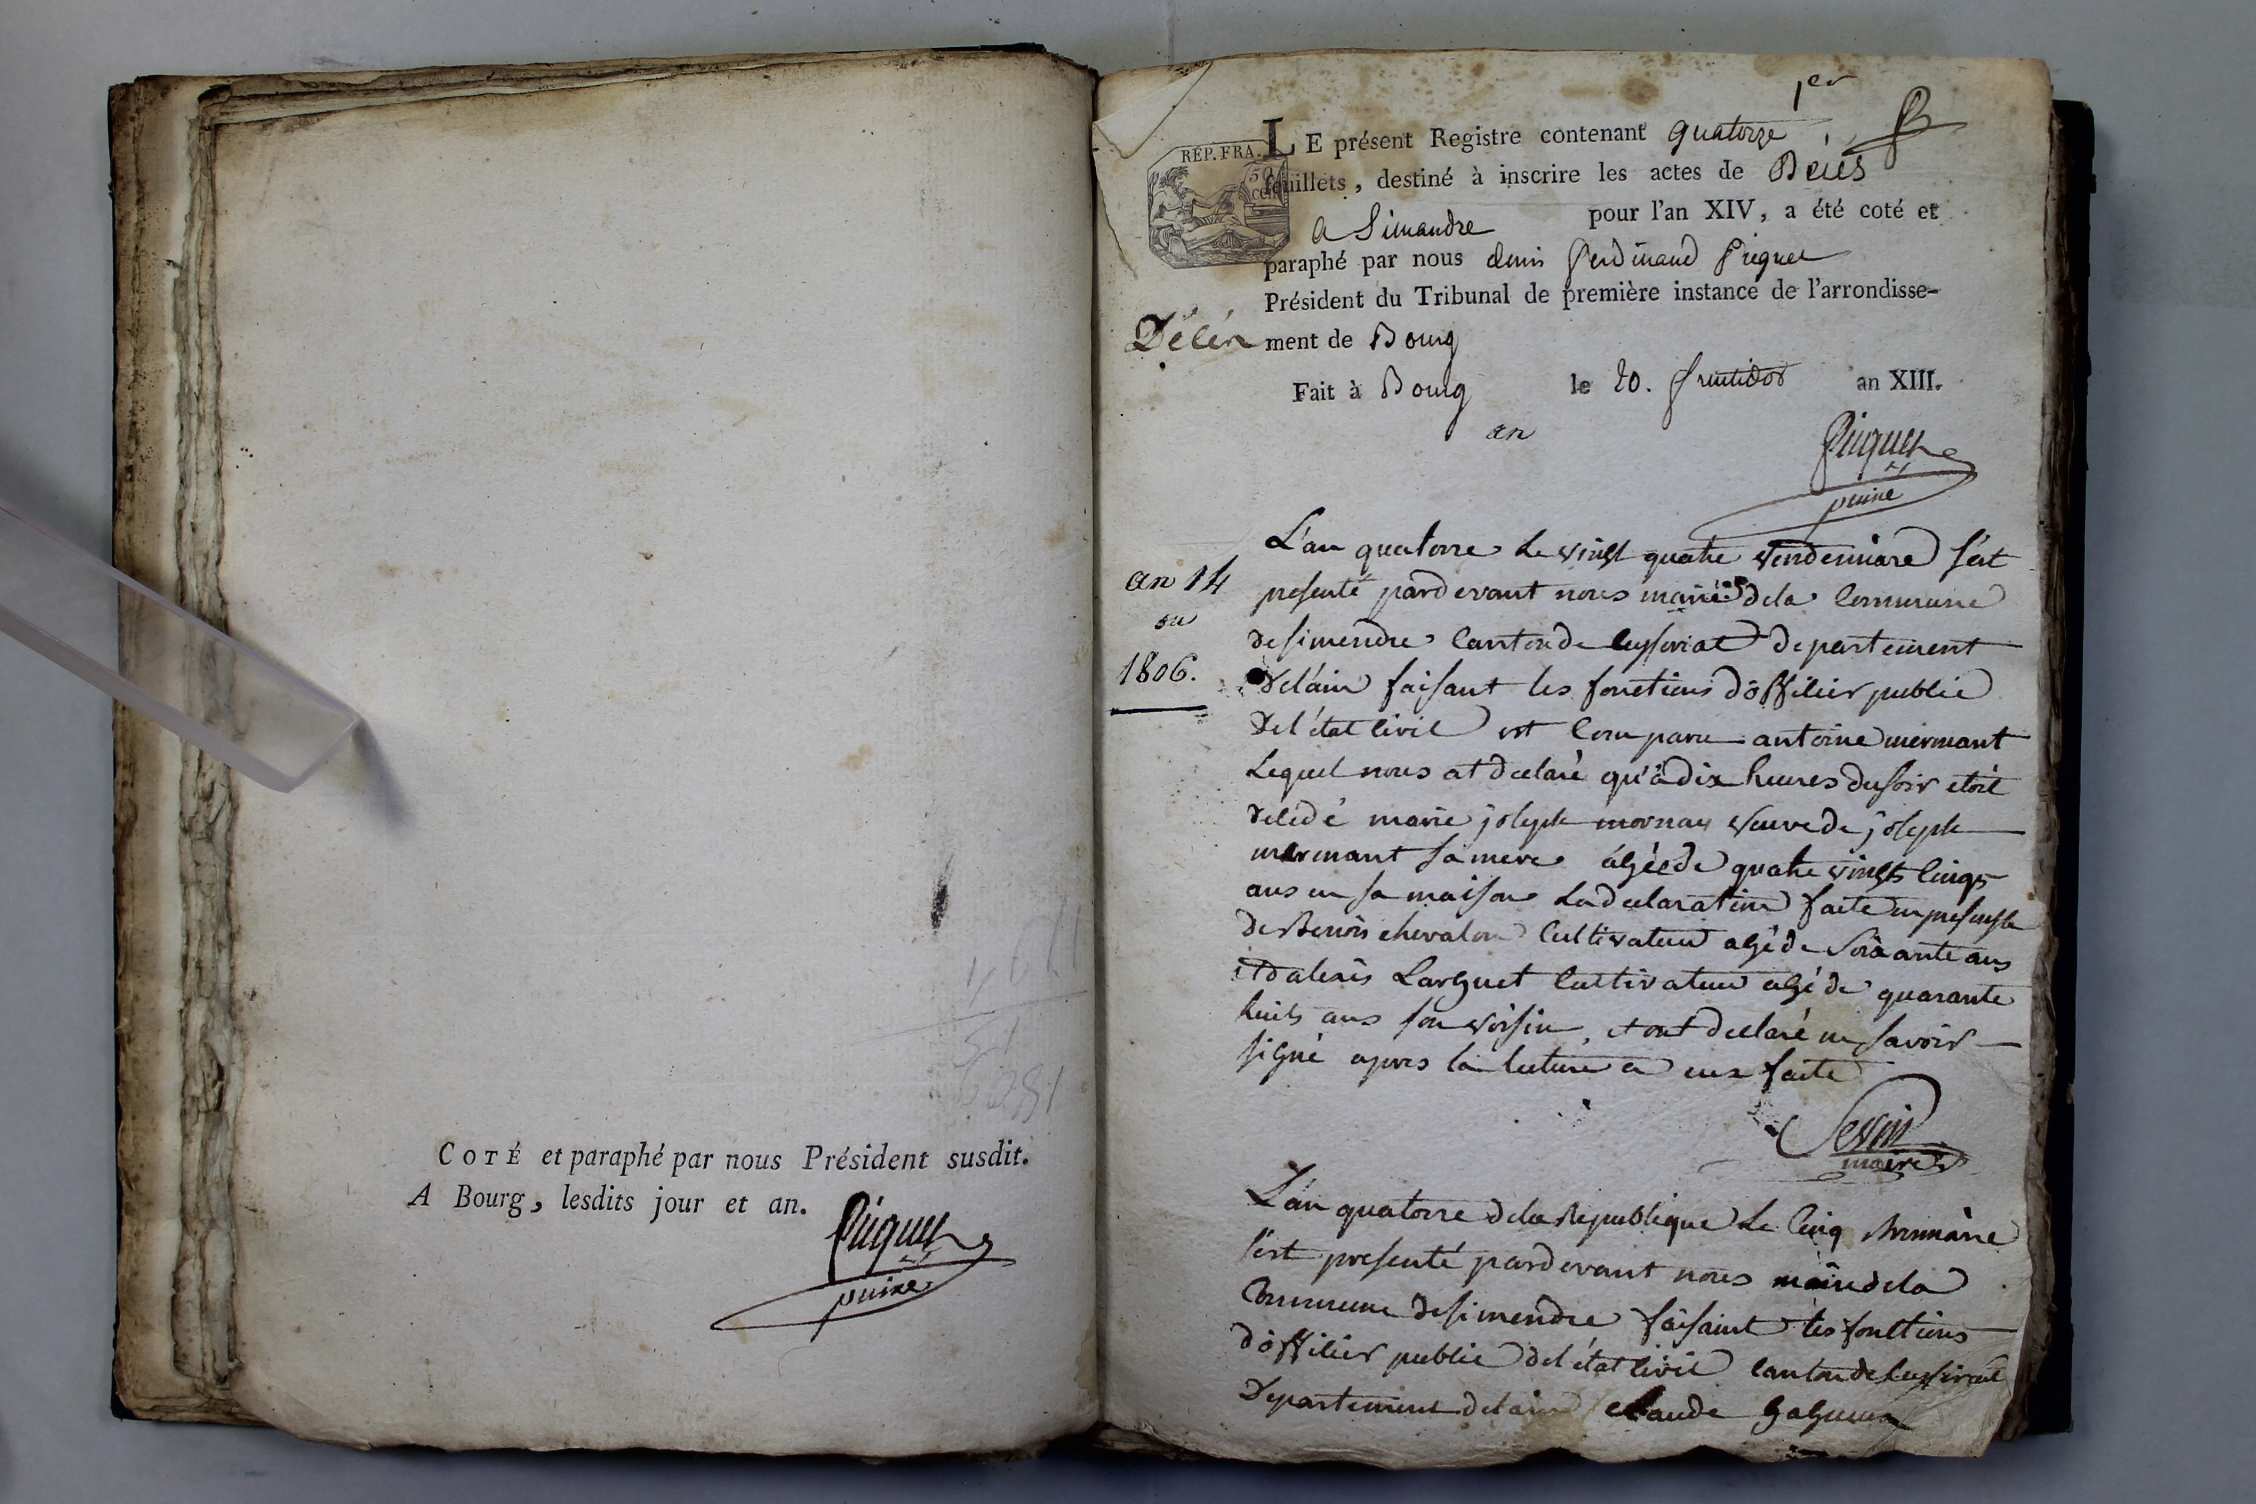 COTÉ et paraphé par nous Président susdit.
A Bourg, lesdits jour et an.
puiné
1er
LE présent Registre contenant quatorze
RÉP. FRA.
50
CEN
feuillets, destiné à inscrire les actes de Décès
a Simandre pour l'an XIV, a été coté et
paraphé par nous denis ferdinand
Président du Tribunal de première instance de l'arrondisse-
Décés
ment de Bourg
Fait à Bourg le 20. fructidor an XIII.
an
puiné
an 14
ou
1806.
L'an quatorze le vingt quatre vendemiaire s'est
presenté pardevant nous maire dela Commune
desimendre Canton de Ceyseriat departement
delain faisant les fonctions d'officier public
del'état civil est Comparu antoine mermant
Lequel nous at declaré qu'a dix heures du soir etoit
decedé marie joseph mornay veuve de joseph
mermant sa mere agée de quatre vingts cinqs
ans en sa maison La declaration faite en presense
de Benois chevalon Cultivateur agé de soixante ans
et dalexis Larguet Cultivateur agé de quarante
huits ans son voisin, et ont declaré ne savoir
signé apres la lecture a eux faite
Sevin
maire
L'an quatorze dela Republique Le Cinq Brumaire
s'est presenté pardevant nous maire dela
Commune desimendre faisant les fonctions
d'officier public del'état civil Canton de Ceyseriat
Departement delain Claude